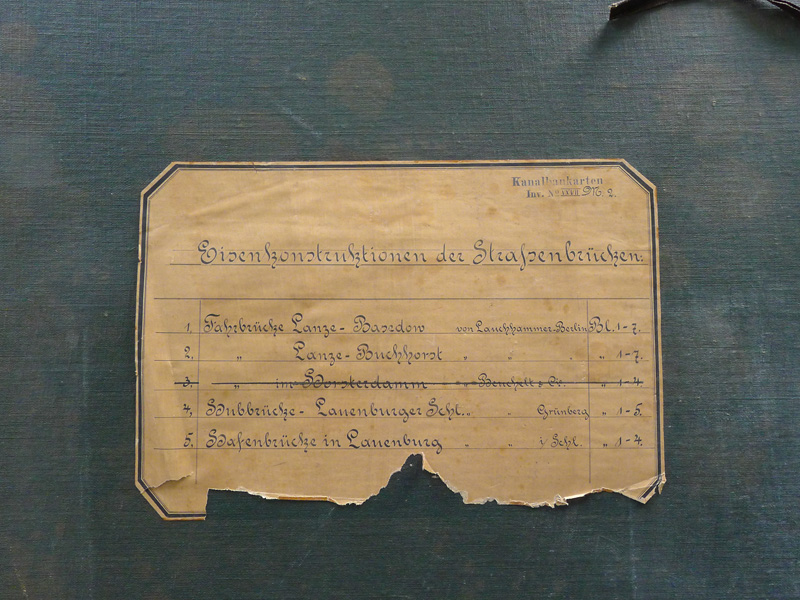 Kanalbaukarten
Inv. No XXVII M. 2.
Eisenkonstruktionen der Straßenbrücken:
1, Fahrbrücke Lanze - Basedow von Lauchhammer-Berlin Bl. 1-7.
2. „ Lanze - Buchhorst „ „ . „ 1-7.
3. „ im Horsterdamm „ Beuchelt & Co. „ 1-4
4, Hubbrücke - Lauenburger Schl. „ „ Grünberg „ 1-5.
5, Hafenbrücke in Lauenburg „ „ i Schl. „ 1-4.